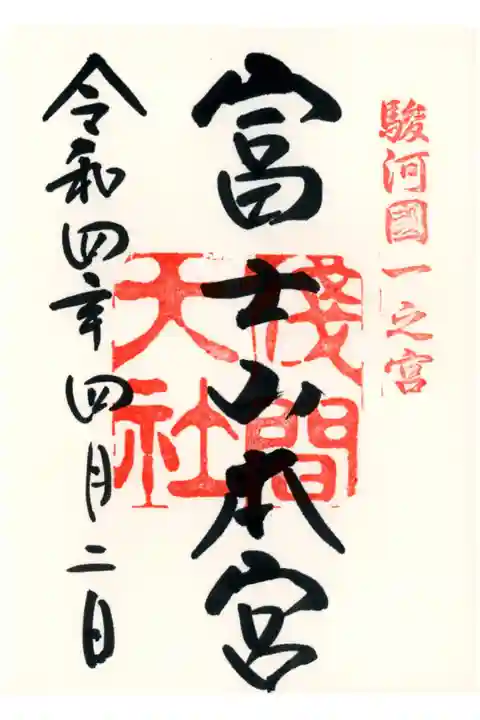 駿河國一之宮
富士山本宮
淺間
大社
令和四年四月二日